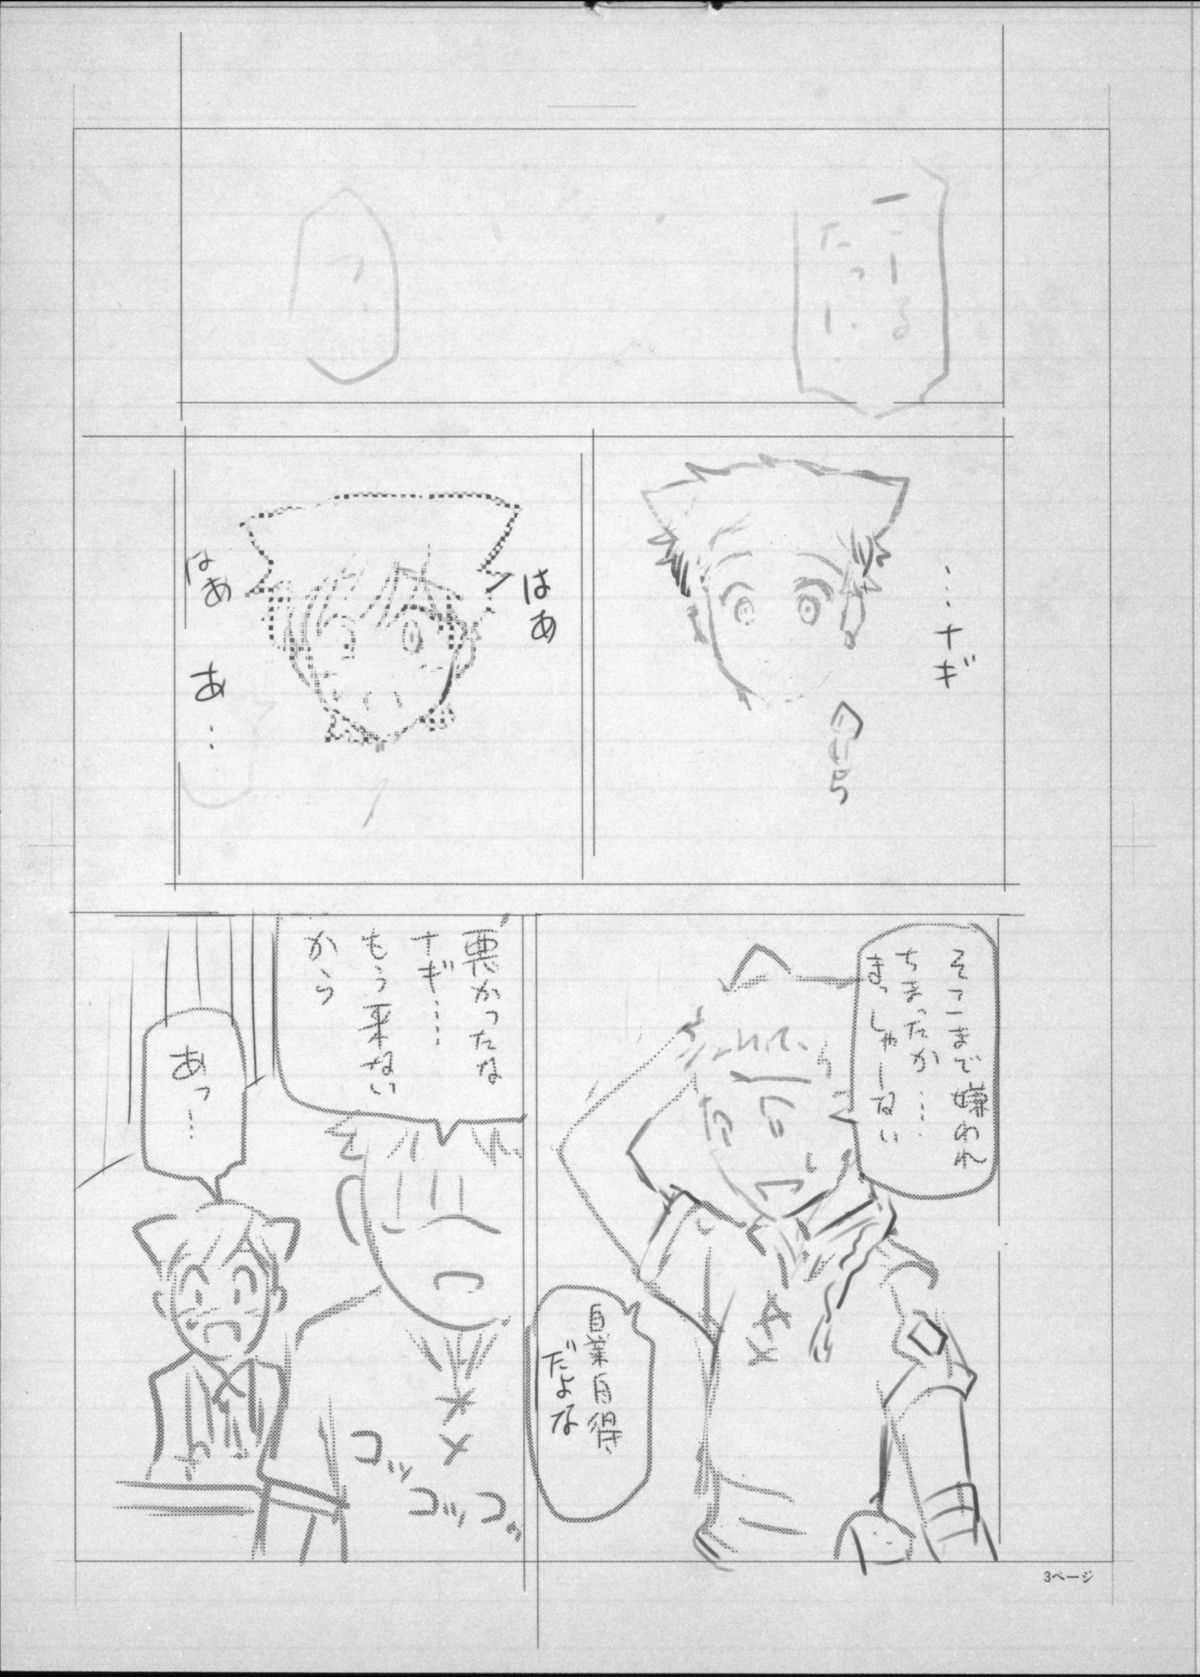 っ…
…ナギ
はあ
はあ
あ…
そこまで嫌われ
ちまったか…
まっしゃーねい
自業自得
だよな
悪かったな
ナギ……
もう来ない
から
あっ…
コッ
コッ
コッ
3ページ